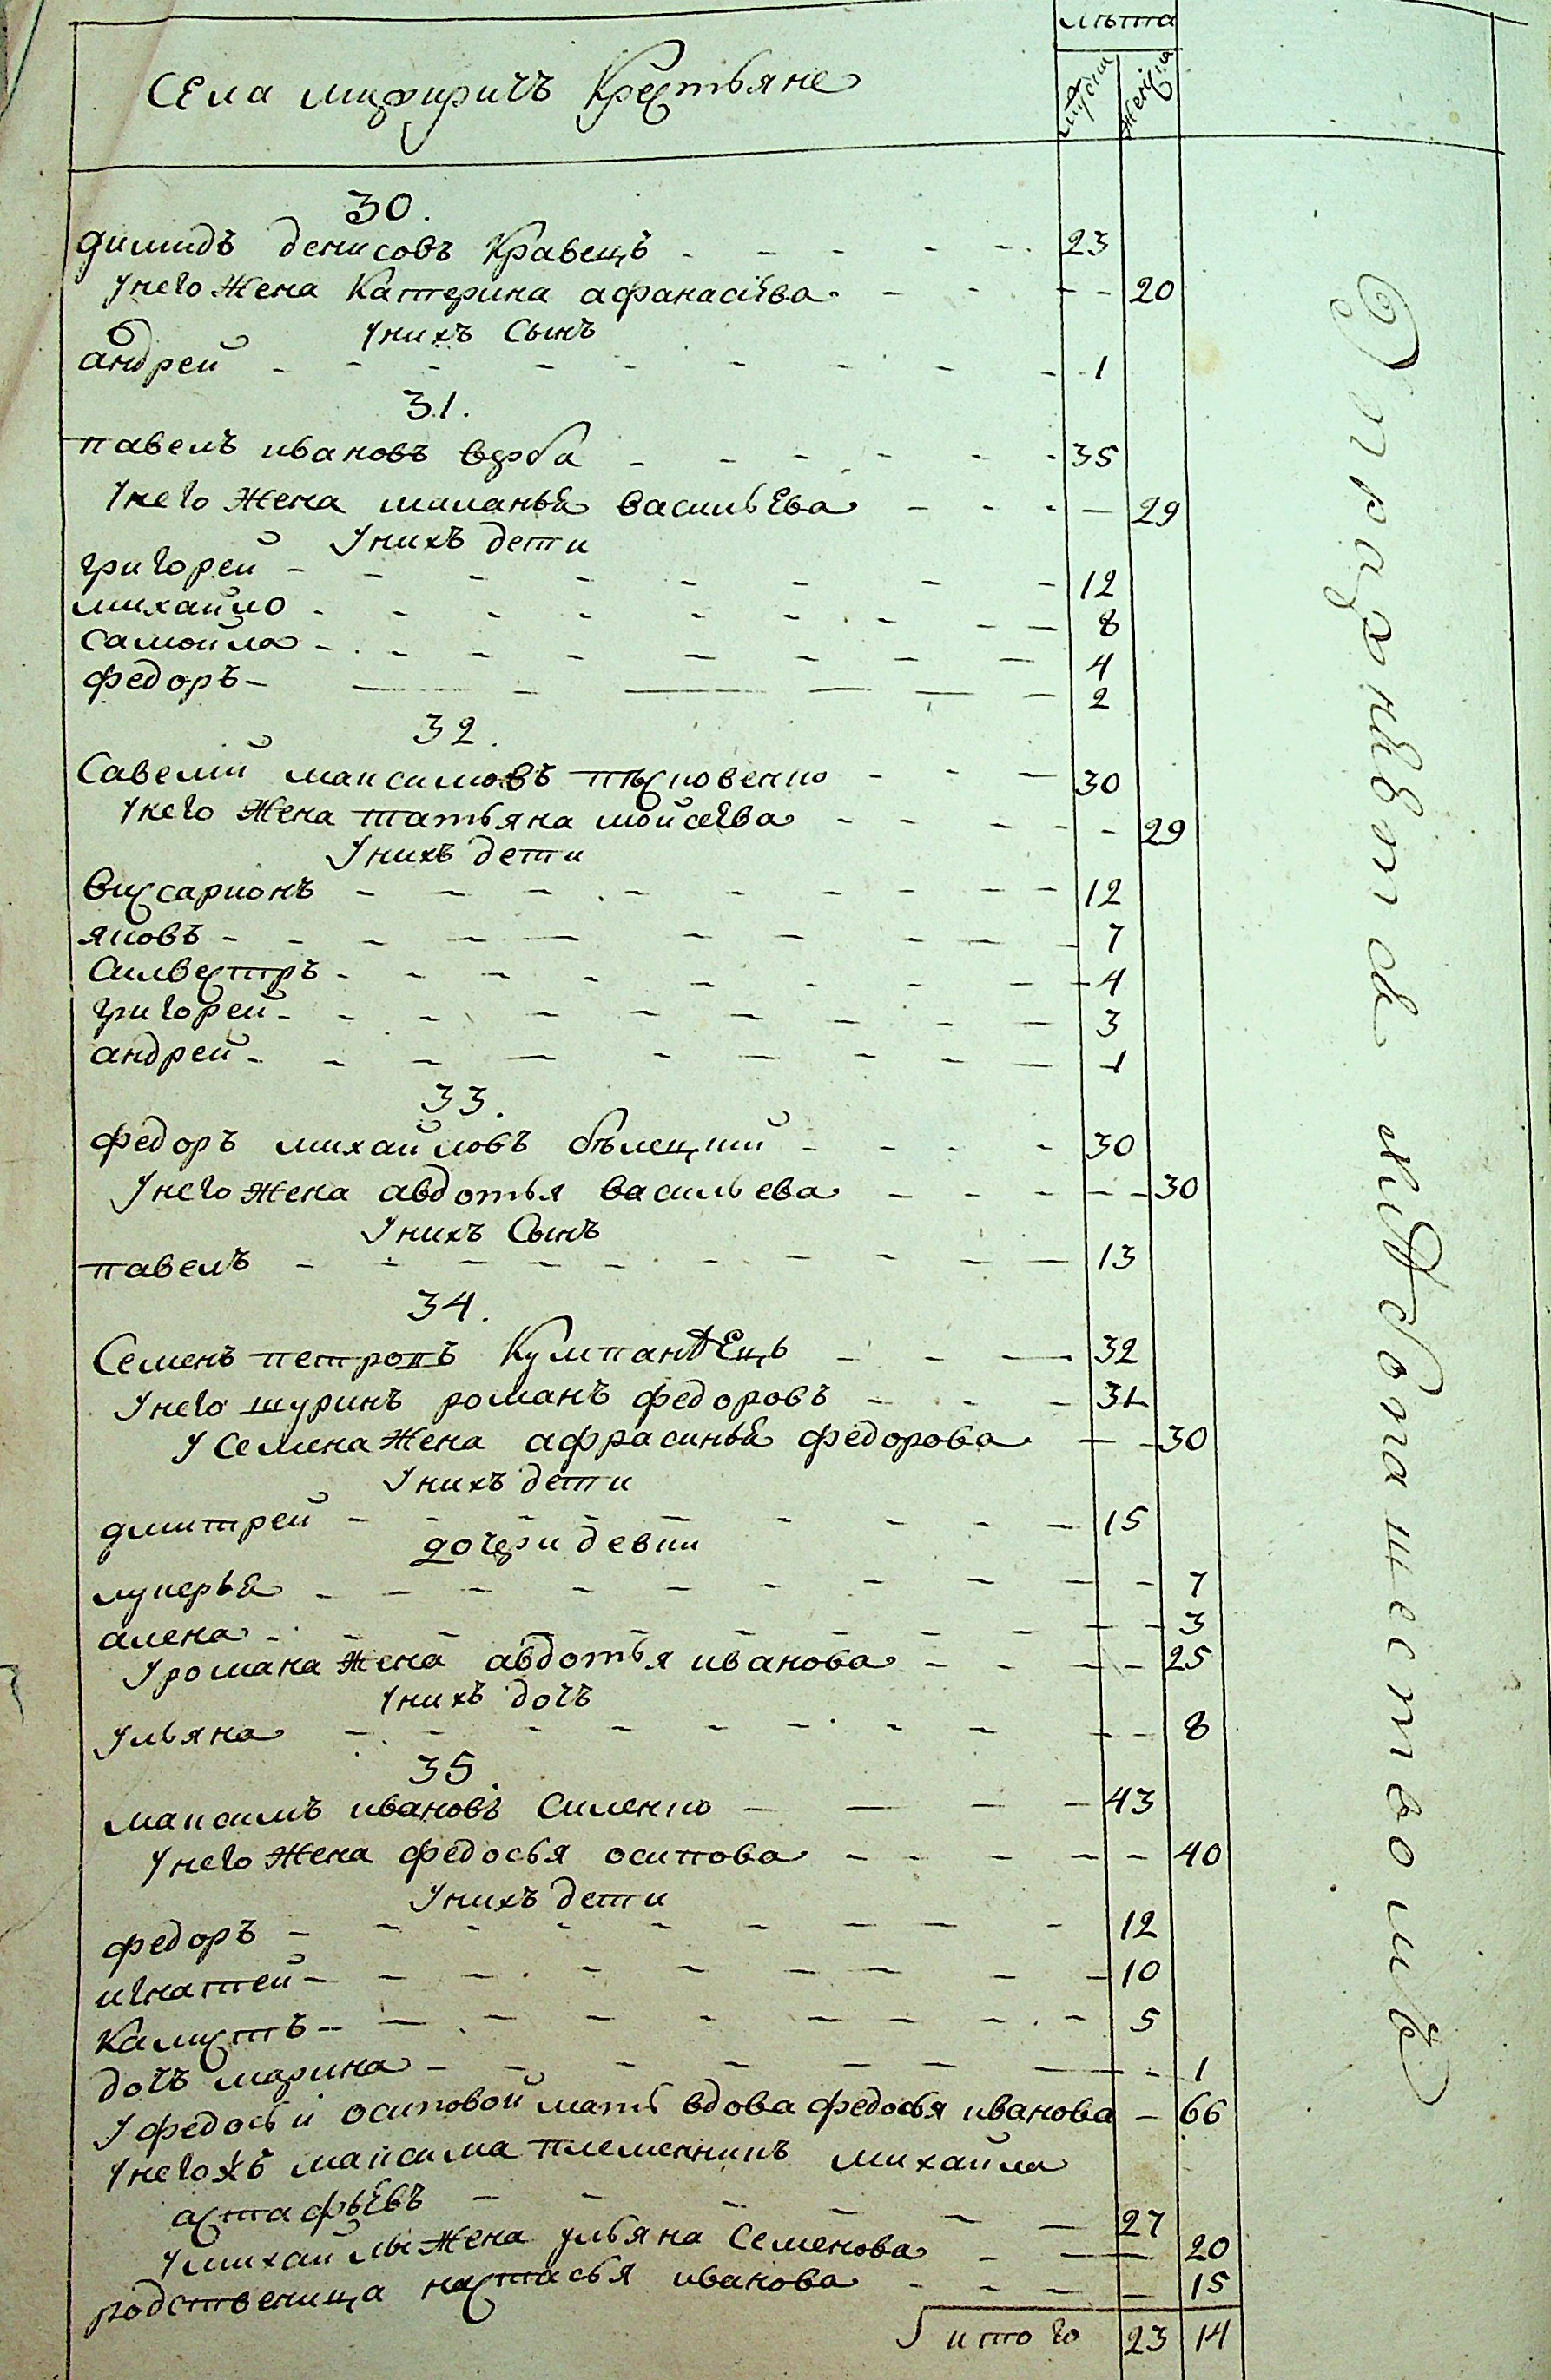 лѣта
Села мифиричъ Крестьяне
мужска
женска
30.
димидъ денисовъ Кравецъ 23
У него жена Катерина афанасіева 20
У нихъ Сынъ
андрей 1
31.
павелъ ивановъ верба 35
У него жена миланья васильева 29
У нихъ дети
григорей 12
михайло 8
самойла 4
федоръ 2
32.
Савелий максимовъ 30
У него жена татьяна мойсеева 29
У нихъ дети
висарионъ 12
яковъ 7
силвестръ 4
григорей 3
андрей 1
33.
федоръ михайловъ белецкий 30
У него жена авдотья васильева 30
У нихъ Сынъ
павелъ 13
34.
Семенъ петровъ Кумпанѣецъ 32
У него шуринъ романъ федоровъ 31
У семена жена афрасинья федорова 30
У нихъ дети
дмитрей 15
дочери девки
лукерья 7
алена 3
У романа жена авдотья иванова 25
У нихъ дочъ
Ульяна 8
35.
максимъ ивановъ Силенко 43
У него жена федосья осипова 40
У нихъ дети
федоръ 12
игнатей 10
Калистъ 5
дочъ марина 1
У федосьи осиповой мать вдова федосья иванова 66
У него жъ максима племенникъ михайла
астафьевъ 27
У михайлы жена ульяна Семенова 20
родственица настасья иванова 15
итого 23 14